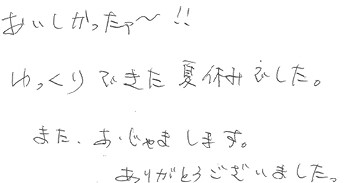 おいしかったァ〜!!
ゆっくりできた夏休みでした。
また、おじゃまします。
ありがとうございました。